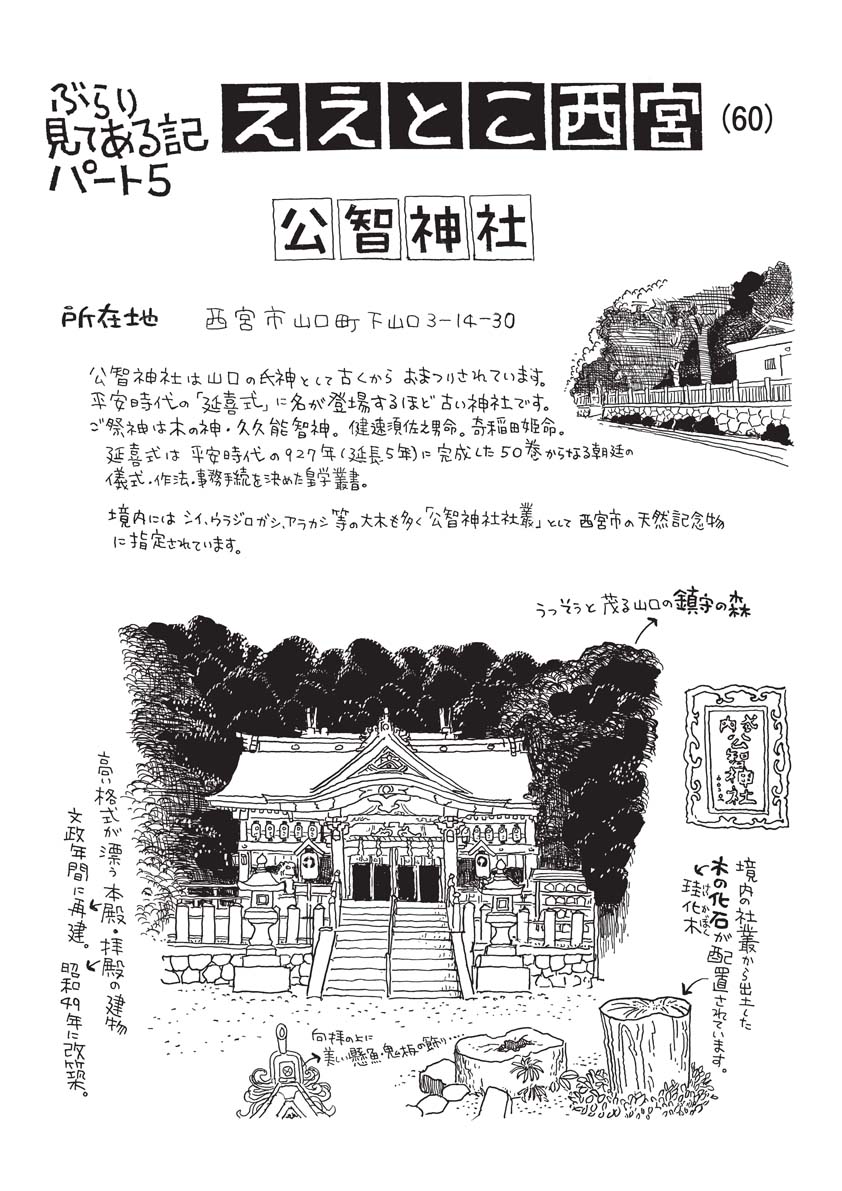 ぶらり
見てある記
パート5
ええとこ西宮 (60)
公智神社
所在地 西宮市山口町下山口3-14-30
公智神社は山口の氏神として古くから おまつりされています。
平安時代の「延喜式」に名が登場するほど古い神社です。
ご祭神は木の神・久久能智神。健速須佐之男命。奇稲田姫命。
延喜式は 平安時代の927年(延長5年)に完成した50巻からなる朝廷の
儀式・作法・事務手続を決めた皇学叢書。
境内には シイ、ウラジロガシ、アラカシ 等の大木も多く「公智神社社叢」として 西宮市の天然記念物
に指定されています。
うっそうと 茂る山口の鎮守の森
公智神社
高い格式が漂う本殿・拝殿の建物
文政年間に再建。昭和49年に改築。
境内の社叢から出土した
木の化石が配置されています。
けいかぼく
珪化木
向拝の上に
美しい懸魚・鬼板の飾り